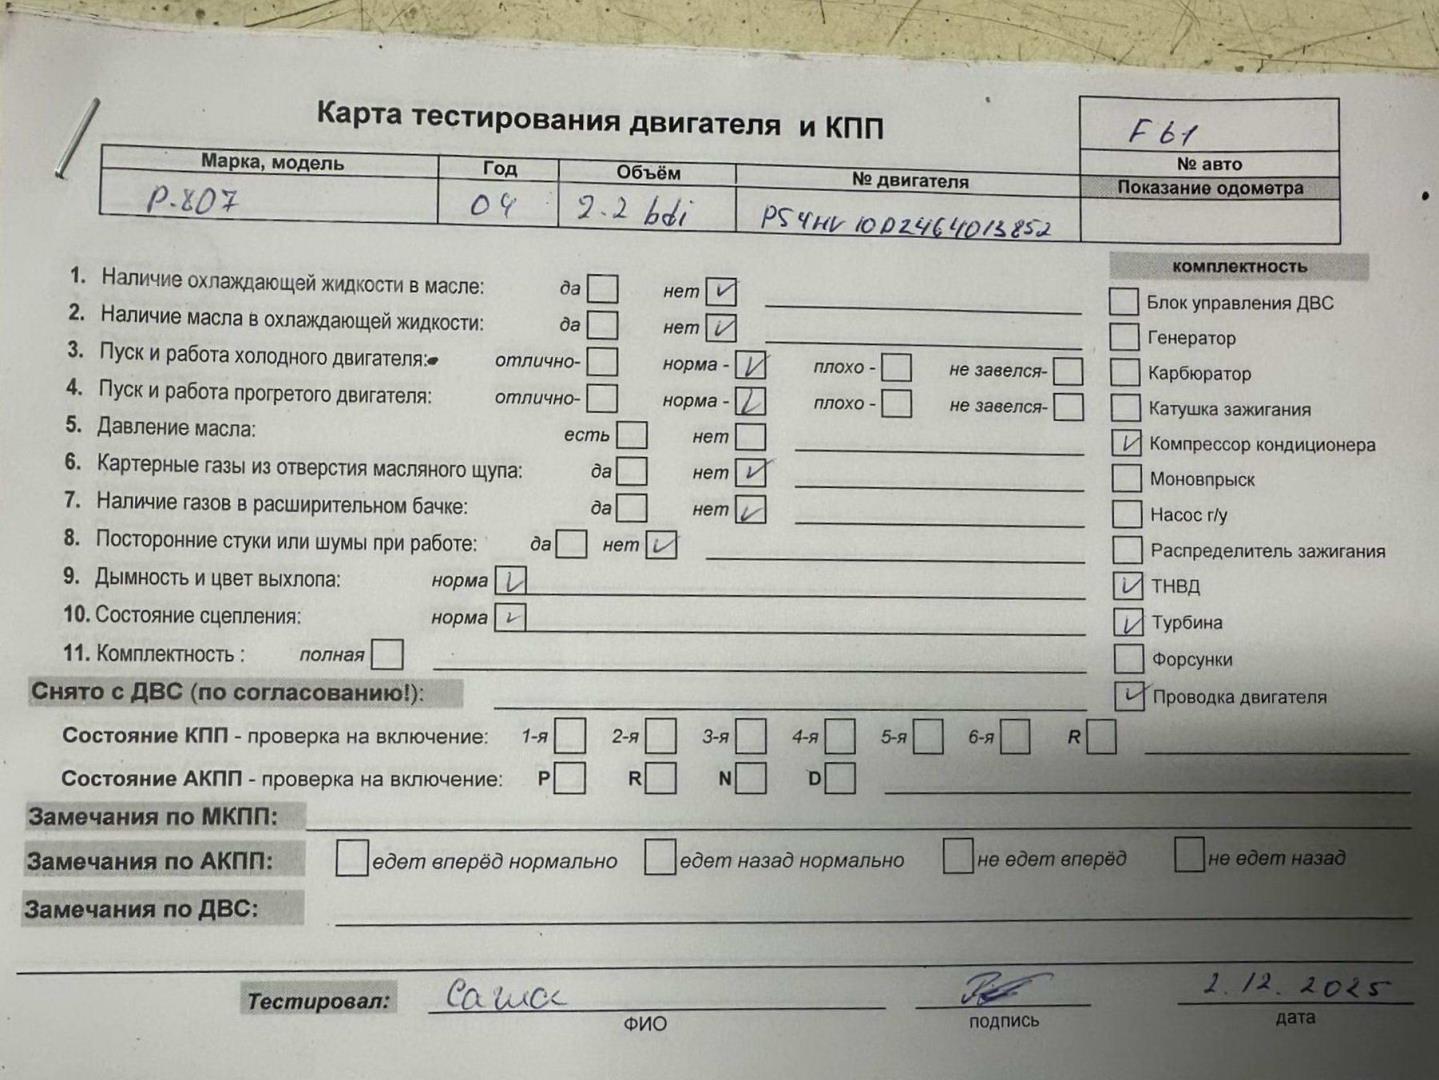 Карта тестирования двигателя и КПП
F61
№ авто
Марка, модель Год Объём № двигателя Показание одометра
P.807 04 2.2 bdi PS4HV10DZ464013852
1. Наличие охлаждающей жидкости в масле: да нет ✓
2. Наличие масла в охлаждающей жидкости: да нет ✓
3. Пуск и работа холодного двигателя: отлично- норма - ✓ плохо - не завелся-
4. Пуск и работа прогретого двигателя: отлично- норма - ✓ плохо - не завелся-
5. Давление масла: есть нет
6. Картерные газы из отверстия масляного щупа: да нет ✓
7. Наличие газов в расширительном бачке: да нет ✓
8. Посторонние стуки или шумы при работе: да нет ✓
9. Дымность и цвет выхлопа: норма ✓
10. Состояние сцепления: норма ✓
11. Комплектность : полная
комплектность
Блок управления ДВС
Генератор
Карбюратор
Катушка зажигания
✓ Компрессор кондиционера
Моновпрыск
Насос г/у
Распределитель зажигания
✓ ТНВД
✓ Турбина
Форсунки
✓ Проводка двигателя
Снято с ДВС (по согласованию!):
Состояние КПП - проверка на включение: 1-я 2-я 3-я 4-я 5-я 6-я R
Состояние АКПП - проверка на включение: P R N D
Замечания по МКПП:
Замечания по АКПП: едет вперёд нормально едет назад нормально не едет вперёд не едет назад
Замечания по ДВС:
Тестировал: Саша 2.12.2025
ФИО подпись дата